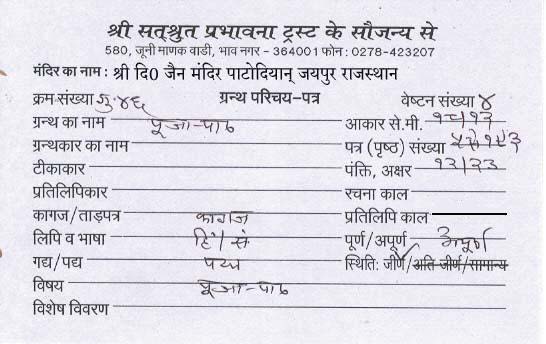 श्री सत्श्रुत प्रभावना ट्रस्ट के सौजन्य से
580, जूनी माणक वाडी, भाव नगर - 364001 फोन : 0278-423207
मंदिर का नाम : श्री दि0 जैन मंदिर पाटोदियान् जयपुर राजस्थान
क्रम संख्या गु. ४६ ग्रन्थ परिचय-पत्र वेष्टन संख्या ४
ग्रन्थ का नाम पूजा-पाठ आकार से.मी. १८/१३
ग्रन्थकार का नाम पत्र (पृष्ठ) संख्या
टीकाकार पंक्ति, अक्षर १२/२३
प्रतिलिपिकार रचना काल
कागज/ताड़पत्र कागज प्रतिलिपि काल
लिपि व भाषा हिं/सं पूर्ण/अपूर्ण अपूर्ण
गद्य/पद्य पद्य स्थिति: जीर्ण/अति जीर्ण/सामान्य
विषय पूजा-पाठ
विशेष विवरण